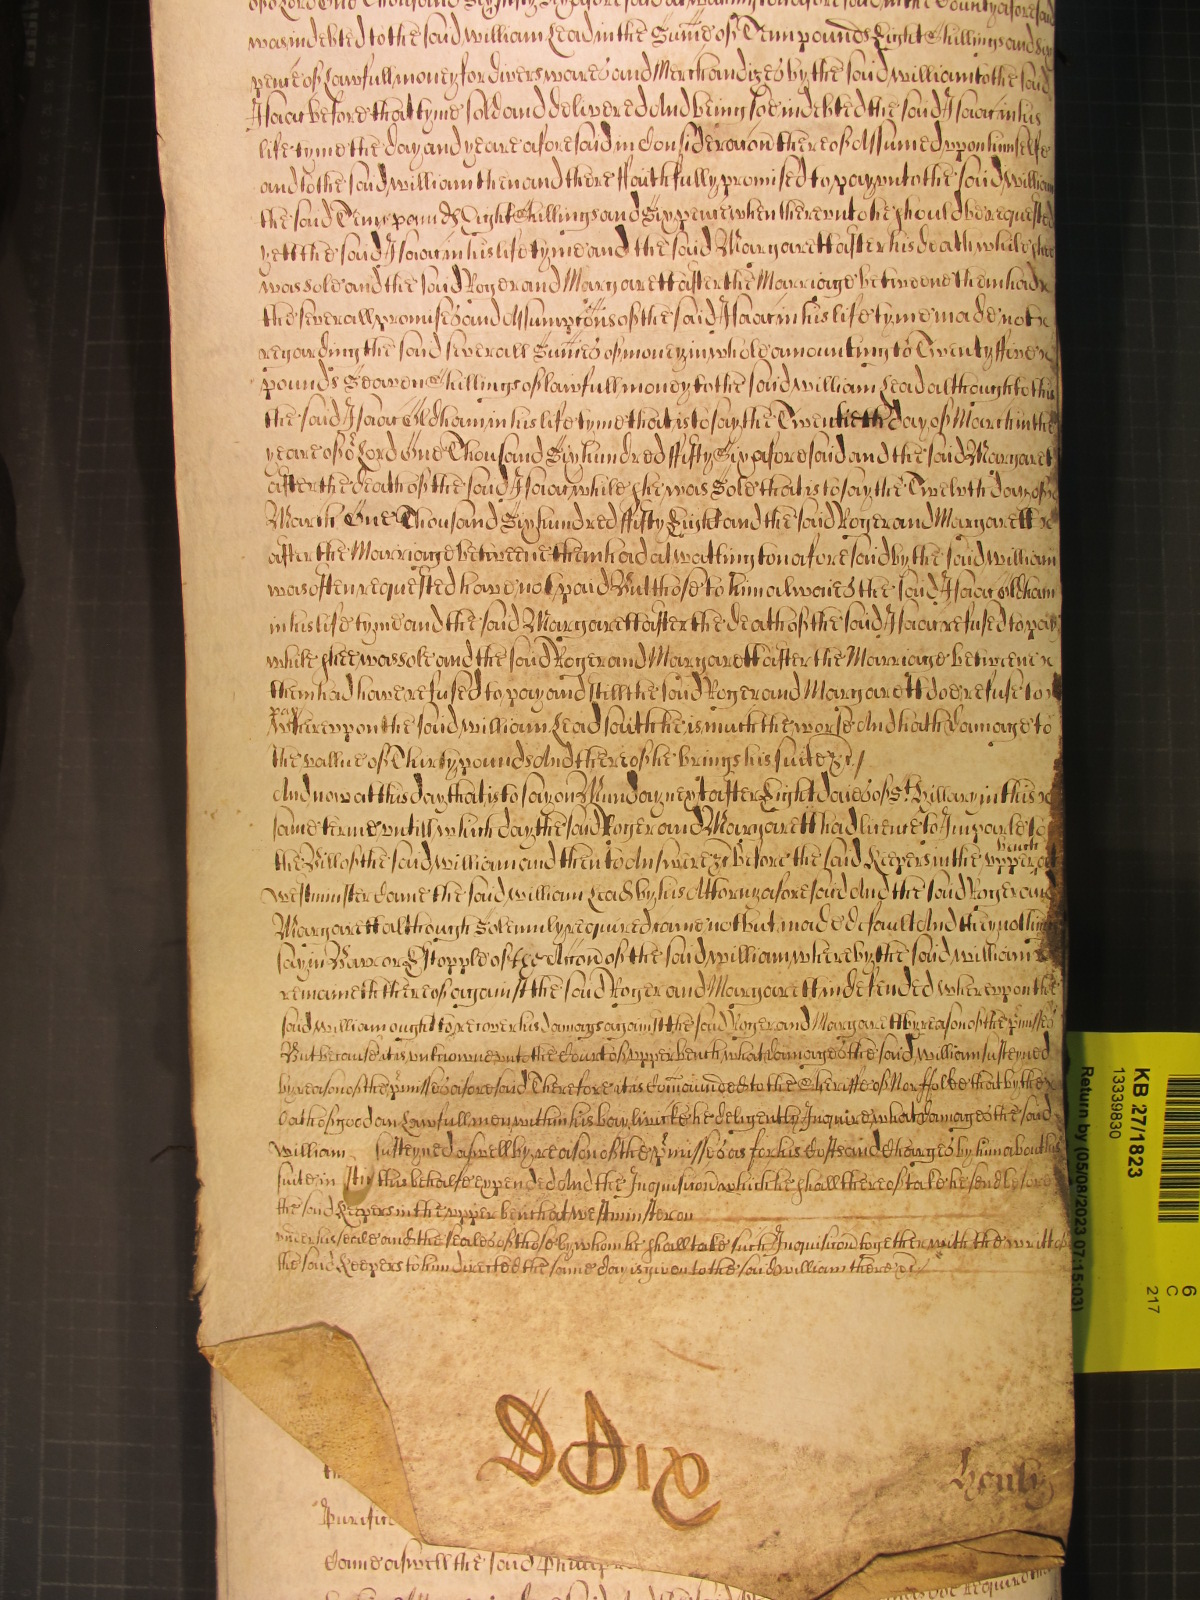 of or Lord One Thousand Sixe aforesaid at watlington aforesaid in the County aforesaid
was indebted to the said william Lead in the Sume of Tenn pounds Eight Shillings and Six
pence of Lawfull money for divers wares and Merchandizes by the said william to the said
Isaac before that tyme sold and delivered And being soe indebted the said Isaac in his
life tyme the day and yeare aforesaid in Consideracon thereof Assumed vpon himselfe
and to the said william then and there ffaithfully promised to pay vnto the said william
the said Tenn pounds Eight Shillings and Six pence when therevnto he should be requested
yett the said Isaac in his life tyme and the said Margarett after his death while shee
was sole and the said Roger and Margarett after the Marriage betweene them had
the severall promises and Assumpcons of the said Isaac in his life tyme made not
regarding the said severall Sumes of money in whole amounting to Twenty ffive
pounds Seaven Shillings of lawfull money to the said william Lead although to this
the said Isaac Oldham in his life tyme that is to say the Twentieth day of March in the
yeare of or Lord One Thousand Six hundred ffifty Six aforesaid and the said Margarett
after the death of the said Isaac while shee was Sole that is to say the Twelvth day of
March One Thousand Six hundred ffifty Eight and the said Roger and Margarett
after the Marriage betweene them had at watlington aforesaid by the said william
was often requested have not paid But those to him alwaies the said Isaac Oldham
in his life tyme and the said Margarett after the death of the said Isaac refused to pay
while shee was sole and the said Roger and Margarett after the Marriage betweene
them had have refused to pay and still the said Roger and Margarett doe refuse to
pay
wherevpon the said william Lead saith he is much the worse And hath damage to
the vallue of Thirty pounds And thereof he brings his suite &c /
And now at this day that is to say on Munday next after Eight daies of St. Hillary in this
same terme vntill which day the said Roger and Margarett had licence to Imparle to
bench
the Bill of the said william and then to Answere &c before the said Keepers in the vpper at
westminster Came the said william Lead by his Attorny aforesaid And the said Roger and
Margarett although Solemnly required came not but made default And they nothing
say in Barr or Estopple of the Accon of the said william whereby the said william
remaineth thereof against the said Roger and Margarett vndefended wherevpon the
said william ought to recover his damags against the said Roger and Margarett by reason of the pmisses
But because it is vnknowne vnto the Court of vpper bench what damages the said william susteyned
by reason of the pmisses aforesaid Therefore it is Comaunded to the Sheriffe of Norffolke that by the
oath of good and Lawfull men within his bayliwicke he deligently Inquire what damages the said
william susteyned aswell by reason of the pmisses as for his Costs and Charges by him about his
suite in this behalfe expended And the Inquisicon which he shall thereof take he send before
the said Keepers in the vpper bench at westminster on
vnder his seale and the seales of those by whom he shall take such Inquisicon together with the writt of
the said Keepers to him directed the same day is given to the said william there &c /
Henly
Purific
Came aswell the said Phillip
KB 27/1823
13339830
Return by (05/08/2023 07:15:03)
6
C
217